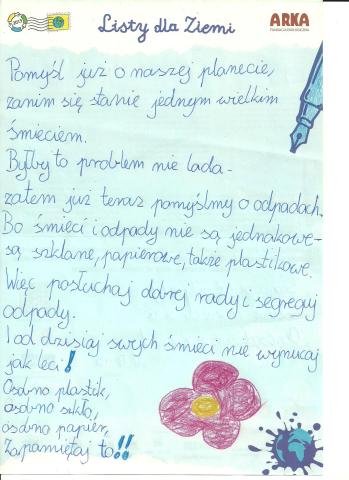 Listy dla Ziemi
ARKA
FUNDACJA EKOLOGICZNA
2013
Pomyśl już o naszej planecie,
zanim się stanie jednym wielkim
śmieciem.
Byłby to problem nie lada-
zatem już teraz pomyślmy o odpadach.
Bo śmieci i odpady nie są jednakowe-
są szklane, papierowe, także plastikowe.
Więc posłuchaj dobrej rady i segreguj
odpady.
I od dzisiaj swych śmieci nie wyrzucaj
jak leci!
Osobno plastik,
osobno szkło,
osobno papier,
Zapamiętaj to!!